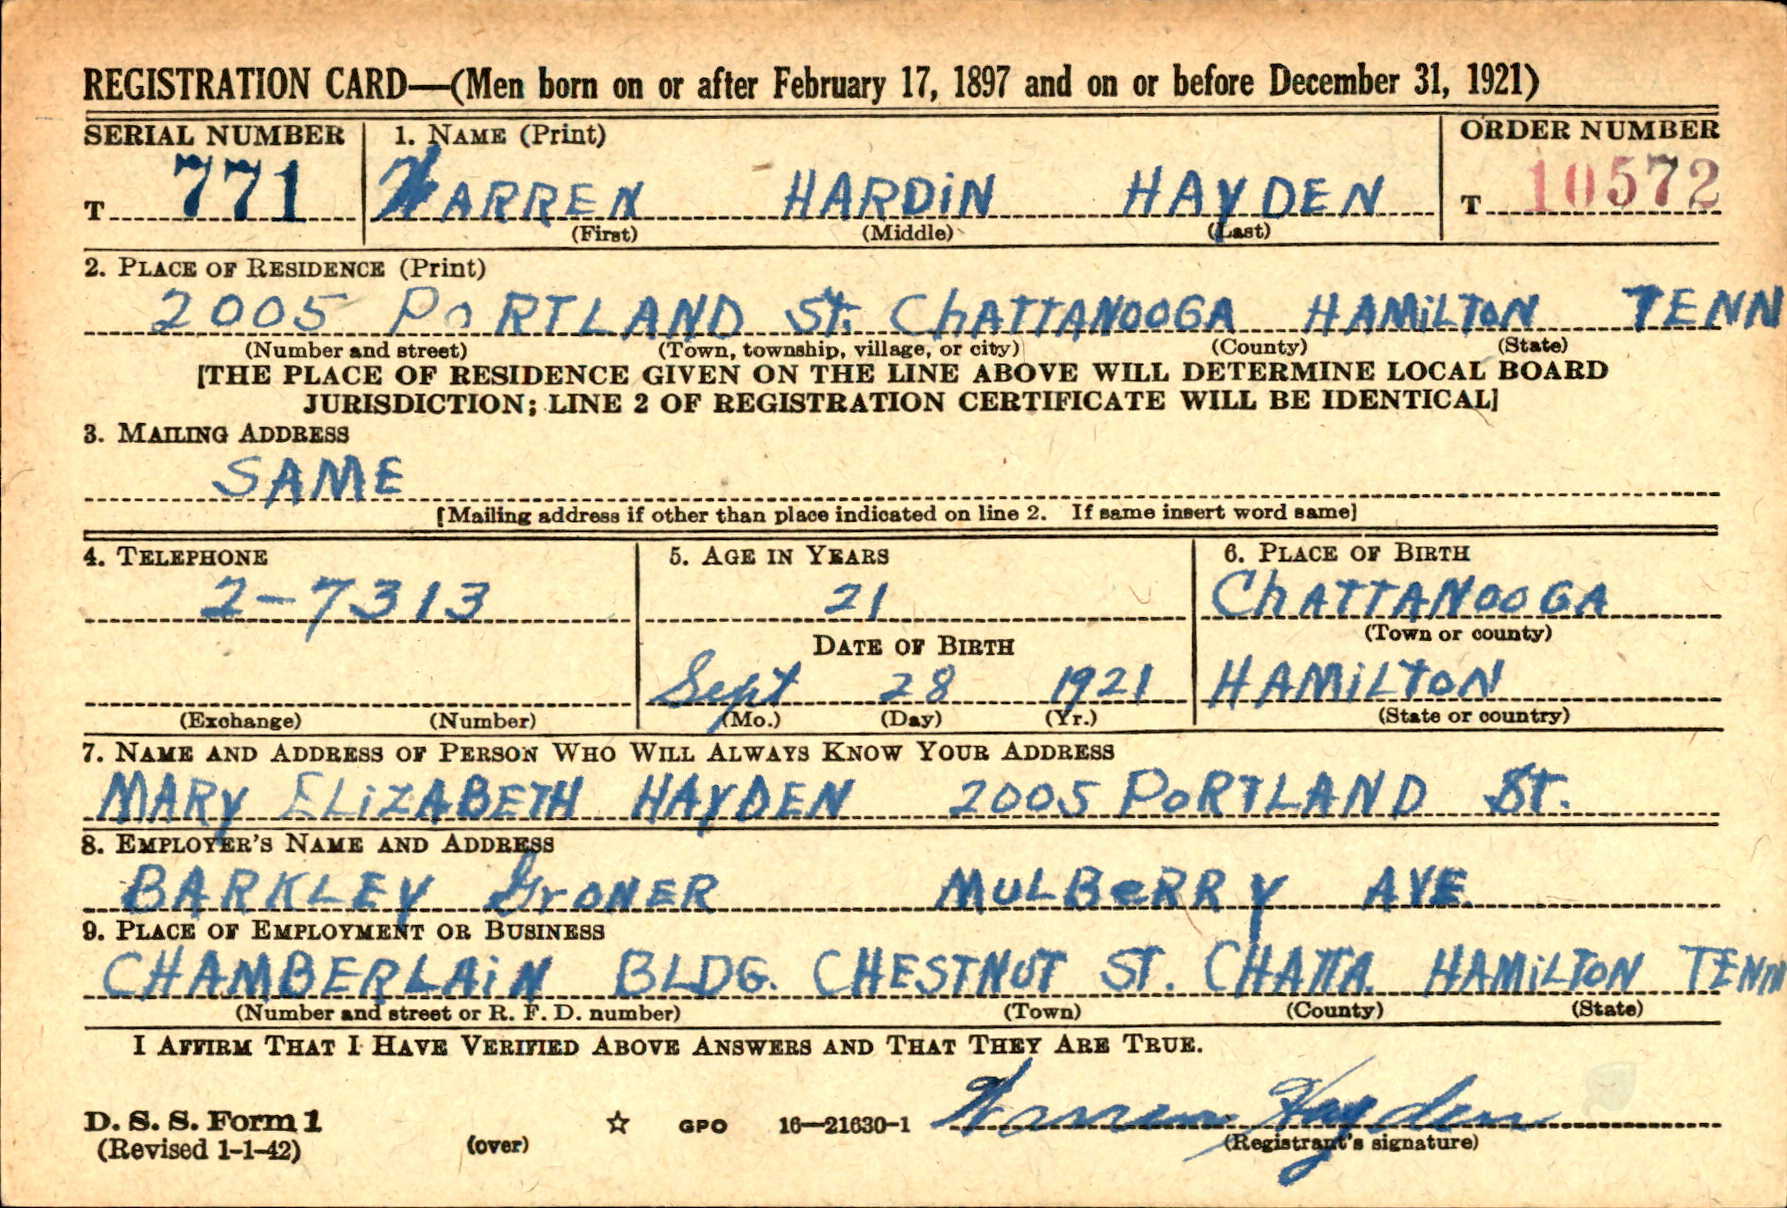 REGISTRATION CARD—(Men born on or after February 17, 1897 and on or before December 31, 1921)
SERIAL NUMBER 1. NAME (Print) ORDER NUMBER
T 771 WARREN HARDIN HAYDEN T 10572
(First) (Middle) (Last)
2. PLACE OF RESIDENCE (Print)
2005 PORTLAND St. ChATTANOOGA HAMiLTON TENN
(Number and street) (Town, township, village, or city) (County) (State)
[THE PLACE OF RESIDENCE GIVEN ON THE LINE ABOVE WILL DETERMINE LOCAL BOARD
JURISDICTION; LINE 2 OF REGISTRATION CERTIFICATE WILL BE IDENTICAL]
3. MAILING ADDRESS
SAME
[Mailing address if other than place indicated on line 2. If same insert word same]
4. TELEPHONE 5. AGE IN YEARS 6. PLACE OF BIRTH
2-7313 21 ChATTANOOGA
(Town or county)
DATE OF BIRTH
Sept 28 1921 HAMiLTON
(Exchange) (Number) (Mo.) (Day) (Yr.) (State or country)
7. NAME AND ADDRESS OF PERSON WHO WILL ALWAYS KNOW YOUR ADDRESS
MARY ELiZABETH HAYDEN 2005 PORTLAND ST.
8. EMPLOYER'S NAME AND ADDRESS
BARKLEY GrONER MULBeRRY AVE.
9. PLACE OF EMPLOYMENT OR BUSINESS
CHAMBERLAiN BLDG. CHESTNUT ST. CHATTA. HAMiLTON TENN
(Number and street or R. F. D. number) (Town) (County) (State)
I AFFIRM THAT I HAVE VERIFIED ABOVE ANSWERS AND THAT THEY ARE TRUE.
Warren Hayden
D. S. S. Form 1
(Revised 1-1-42) (over) ☆ GPO 16—21630-1 (Registrant's signature)